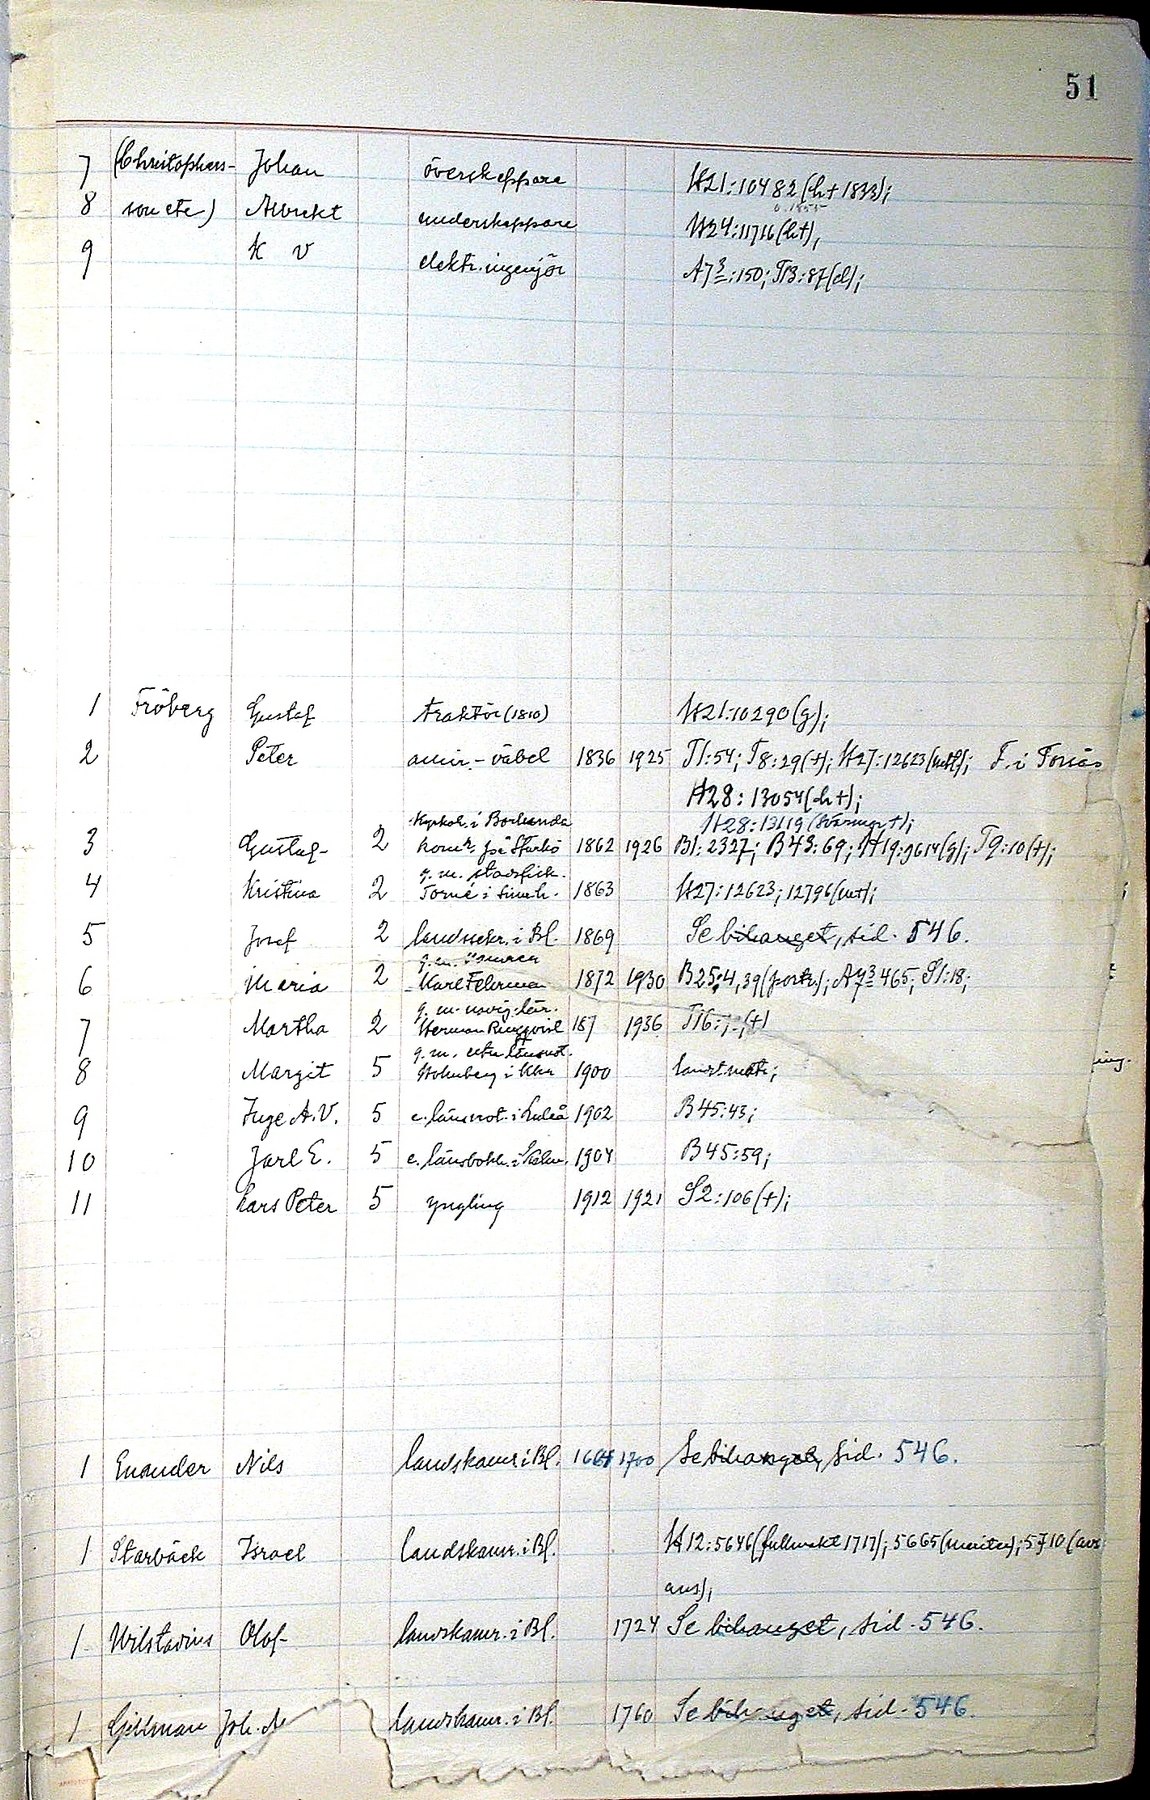 51
7 (Christophers- Johan överskeppare H21:10482 (h+1833);
8 son etc) Albrekt underskeppare H24:11716 (h+),
9 K V elektr. ingenjör A7³:150; T13:87(d);
1 Fröberg Gustaf traktör (1810) H21:10290 (g);
2 Peter amir.-väbel 1836 1925 T1:54; T8:29(+); H27:12623 F. i Torsås
H28:13054 (h+);
kyrkoh. i Backaanda H28:13119
3 Gustaf 2 på Sturkö 1862 1926 B1:2327; B43:69; H19:9614(g); T9:10(+);
g. m. stadsfisk.
4 Kristina 2 Torné i Simrh. 1863 H27:12623; 12796
5 Josef 2 landssekr. i Bl. 1869 Se bihanget, sid. 546.
g. m.
6 Maria 2 Karl Fehrman 1872 1930 B25:4, 39 (portr); A7³ 465; S1:18;
g. m. navig. lär.
7 Martha 2 Herman Ringqvist 187 1936 T16: (+)
g. m. extra länsnot.
8 Margit 5 Holmberg i Kkr 1900
9 Inge A. V. 5 e. länsnot. i Luleå 1902 B45:43;
10 Jarl E. 5 e. länsbokh. i Kalm. 1904 B45:59;
11 Lars Peter 5 yngling 1912 1921 S2:106(+);
1 Enander Nils landskamr. i Bl. 1664 1700 Se bihanget, sid. 546.
1 Starbäck Israel landskamr. i Bl. H12:5646 (fullmakt 1717); 5665 (meriter); 5710
1 Wilstadius Olof landskamr. i Bl. 1724 Se bihanget, sid. 546.
1 Gillman Joh. A landskamr. i Bl. 1760 Se bihanget, sid. 546.